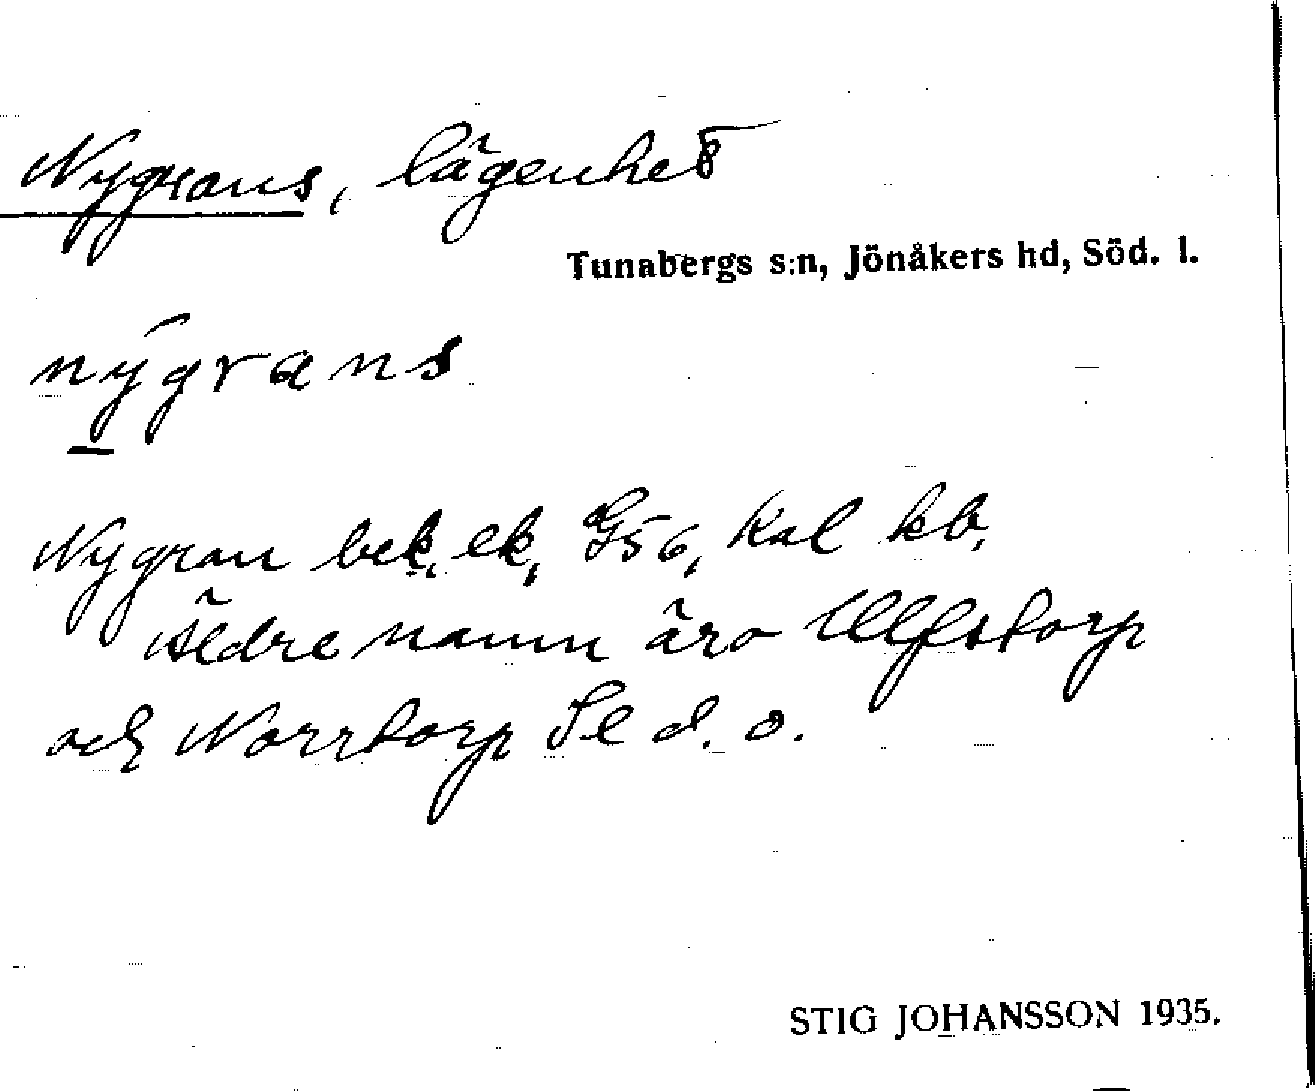 Nygrans, lägenhet
Tunabergs s:n, Jönåkers hd, Söd. l.
nýgrans
Nygran bek. ek, G56, Kal kb,
Äldre namn äro Ulfstorp
och Norrtorp Se d. o.
STIG JOHANSSON 1935.